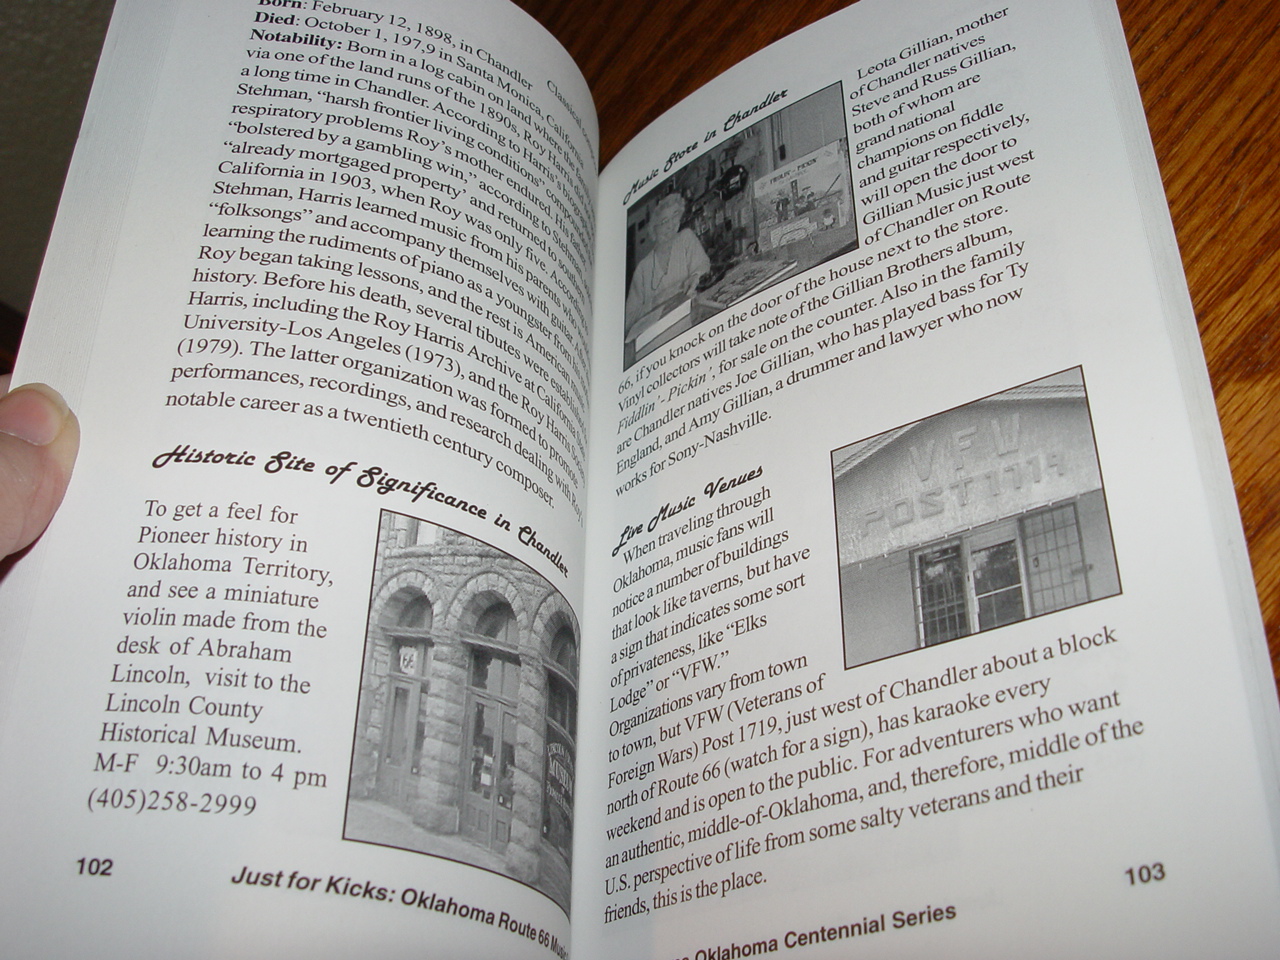 Born: February 12, 1898, in Chandler
Died: October 1, 197,9 in Santa Monica, California
Classical
Notability: Born in a log cabin on land where the
via one of the land runs of the 1890s, Roy Harris did
a long time in Chandler. According to Harris's
Stehman, "harsh frontier living conditions"
respiratory problems Roy's mother endured. His father
"bolstered by a gambling win," according to Stehman,
"already mortgaged property" and returned to southern
California in 1903, when Roy was only five. According
Stehman, Harris learned music from his parents who
"folksongs" and accompany themselves with guitar.
learning the rudiments of piano as a youngster from his
Roy began taking lessons, and the rest is American
history. Before his death, several tibutes were established
Harris, including the Roy Harris Archive at California State
University-Los Angeles (1973), and the Roy Harris Society
(1979). The latter organization was formed to promote
performances, recordings, and research dealing with Roy's
notable career as a twentieth century composer.
Historic Site of Significance in Chandler
To get a feel for
Pioneer history in
Oklahoma Territory,
and see a miniature
violin made from the
desk of Abraham
Lincoln, visit to the
Lincoln County
Historical Museum.
M-F 9:30am to 4 pm
(405)258-2999
66
MUSEUM
102
Just for Kicks: Oklahoma Route 66
Music Store in Chandler
Leota Gillian, mother
of Chandler natives
Steve and Russ Gillian,
both of whom are
grand national
champions on fiddle
and guitar respectively,
will open the door to
Gillian Music just west
of Chandler on Route
66, if you knock on the door of the house next to the store.
Vinyl collectors will take note of the Gillian Brothers album,
Fiddlin'- Pickin', for sale on the counter. Also in the family
are Chandler natives Joe Gillian, who has played bass for Ty
England, and Amy Gillian, a drummer and lawyer who now
works for Sony-Nashville.
Live Music Venues
When traveling through
Oklahoma, music fans will
notice a number of buildings
that look like taverns, but have
a sign that indicates some sort
of privateness, like "Elks
Lodge" or "VFW."
Organizations vary from town
to town, but VFW (Veterans of
Foreign Wars) Post 1719, just west of Chandler about a block
north of Route 66 (watch for a sign), has karaoke every
weekend and is open to the public. For adventurers who want
an authentic, middle-of-Oklahoma, and, therefore, middle of the
U.S. perspective of life from some salty veterans and their
friends, this is the place.
VFW
POST 1719
103
Oklahoma Centennial Series